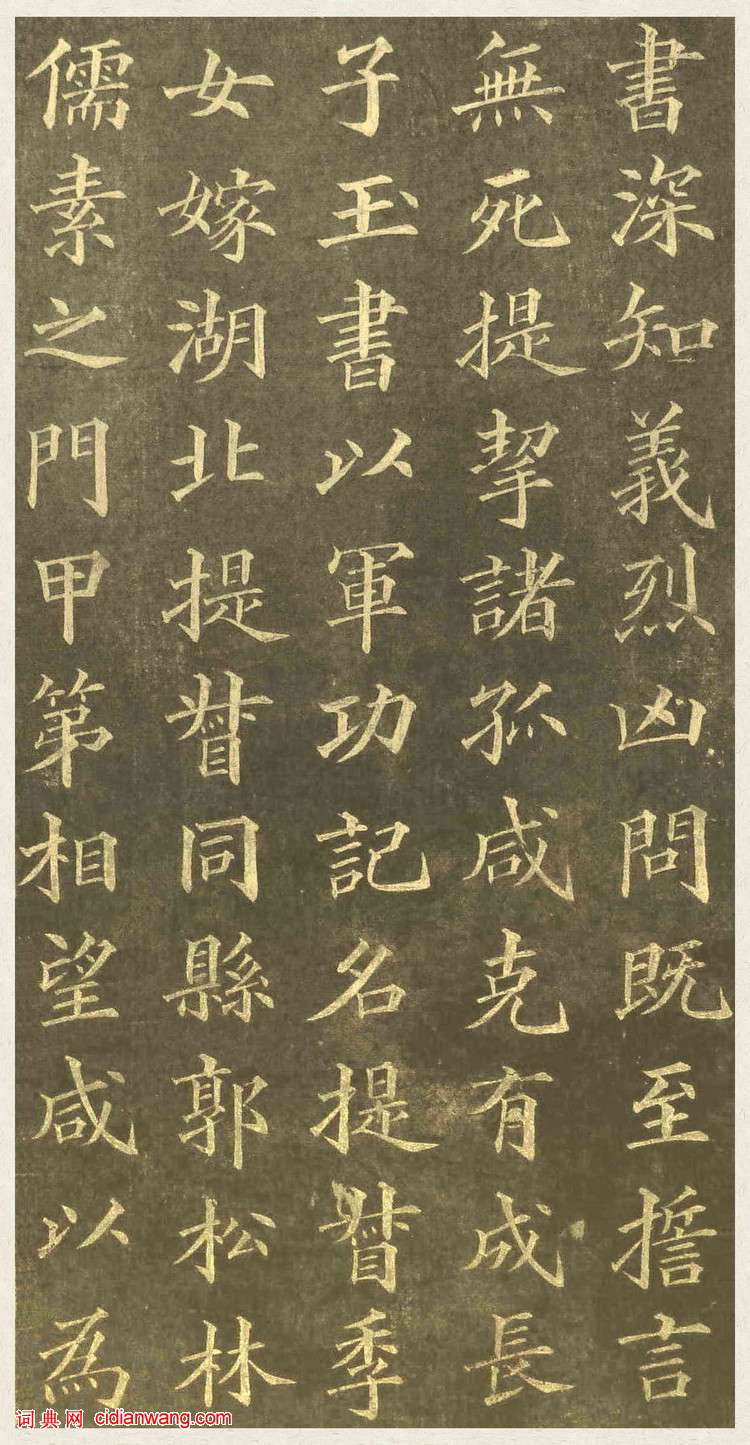 書深知義烈凶問既至擔言
無死提挈諸孤咸克有成長
子玉書以軍功記名提督季
女嫁湖北提督同縣郭松林
儒素之門甲第相望咸以為
词典网 cidianwang.com